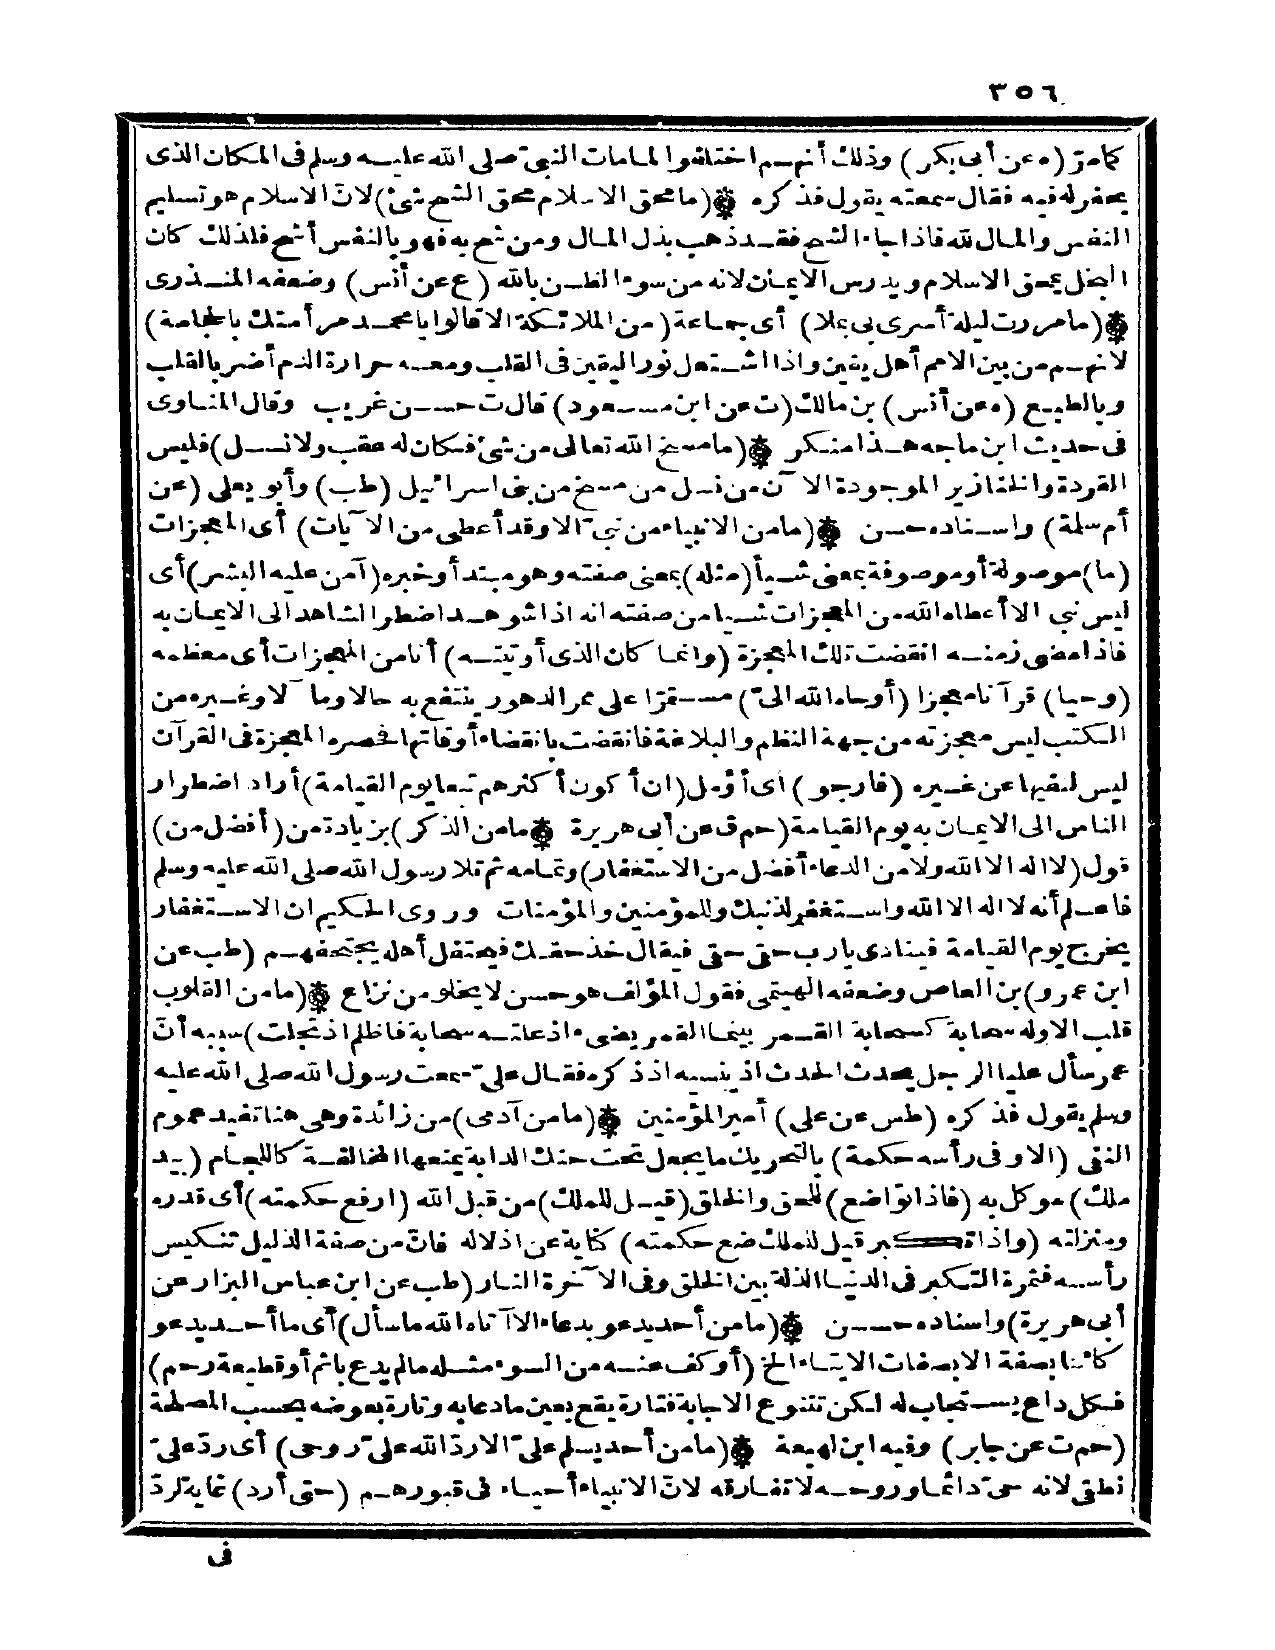 ٣٥٦
كما مرّ (ه عن أبى بكر) وذلك أنهم اختلفوا لما مات النبىّ صلى الله عليه وسلم فى المكان الذى
يحفر له فيه فقال سمعته يقول فذكره ۞ (ما محق الاسلام محق الشح شئ) لانّ الاسلام هو تسليم
النفس والمال لله فاذا جاء الشح فقد ذهب بذل المال ومن شح به فهو بالنفس أشح فلذلك كان
البخل يمحق الاسلام ويدرس الايمان لانه من سوء الظن بالله (ع عن أنس) وضعفه المنذرى
۞ (ما مررت ليلة أسرى بى بملا) أى جماعة (من الملائكة الا قالوا يا محمد مر أمتك بالحجامة)
لانهم من بين الامم أهل يقين واذا اشتعل نور اليقين فى القلب ومعه حرارة الدم أضر بالقلب
وبالطبع (ه عن أنس) بن مالك (ت عن ابن مسعود) قال ت حسن غريب وقال المناوى
فى حديث ابن ماجه هذا منكر ۞ (ما مسخ الله تعالى من شئ فكان له عقب ولا نسل) فليس
القردة والخنازير الموجودة الآن من نسل من مسخ من بنى اسرائيل (طب) وأبو يعلى (عن
أم سلمة) واسناده حسن ۞ (ما من الانبياء من نبىّ الا وقد أعطى من الآيات) أى المعجزات
(ما) موصولة أو موصوفة بمعنى شيأ (مثله) بمعنى صفته وهو مبتدأ وخبره (آمن عليه البشر) أى
ليس نبي الا أعطاه الله من المعجزات شيأ من صفته انه اذا شوهد اضطر الشاهد الى الايمان به
فاذا مضى زمنه انقضت تلك المعجزة (وانما كان الذى أوتيته) أنا من المعجزات أى معظمه
(وحيا) قرآنا معجزا (أوحاه الله الىّ) مستمرّا على ممر الدهور ينتفع به حالا ومآلا وغيره من
الكتب ليس معجزته من جهة النظم والبلاغة فانقضت بانقضاء أوقاتها فحصره المعجزة فى القرآن
ليس لنفيها عن غيره (فارجو) أى أؤمل (ان أكون أكثرهم تبعا يوم القيامة) أراد اضطرار
الناس الى الايمان به يوم القيامة (حم ق عن أبى هريرة ۞ ما من الذكر) بزيادة من (أفضل من)
قول (لا اله الا الله ولا من الدعاء أفضل من الاستغفار) وتمامه ثم تلا رسول الله صلى الله عليه وسلم
فاعلم أنه لا اله الا الله واستغفر لذنبك وللمؤمنين والمؤمنات وروى الحكيم ان الاستغفار
يخرج يوم القيامة فينادى يا رب حقى حقى فيقال خذ حقك فيحتفل أهله يجتحفهم (طب عن
ابن عمرو) بن العاص وضعفه الهيتمى فقول المؤلف هو حسن لا يخلو من نزاع ۞ (ما من القلوب
قلب الا وله سحابة كسحابة القمر بينما القمر يضىء اذ علته سحابة فاظلم اذ تجلت) سببه أنّ
عمر سأل عليا الرجل يحدث الحدث اذ ينسيه اذ ذكره فقال علىّ سمعت رسول الله صلى الله عليه
وسلم يقول فذكره (طس عن على) أمير المؤمنين ۞ (ما من آدمى) من زائدة وهى هنا تفيد عموم
النفى (الا وفى رأسه حكمة) بالتحريك ما يجعل تحت حنك الدابة يمنعها المخالفة كاللجام (بيد
ملك) موكل به (فاذا تواضع) للحق والخلق (قيل للملك) من قبل الله (ارفع حكمته) أى قدره
ومنزلته (واذا تكبر قيل للملك ضع حكمته) كناية عن اذلاله فانّ من صفة الذليل تنكيس
رأسه فثمرة التكبر فى الدنيا الذلة بين الخلق وفى الآخرة النار (طب عن ابن عباس البزار عن
أبى هريرة) واسناده حسن ۞ (ما من أحد يدعو بدعاء الا آتاه الله ما سأل) أى ما أحد يدعو
كائنا بصفة الا بصفات الايتاء الخ (أو كف عنه من السوء مثله ما لم يدع باثم أو قطيعة رحم)
فكل داع يستجاب له لكن تتنوع الاجابة فتارة يقع بعين ما دعا به وتارة بعوضه بحسب المصلحة
(حم ت عن جابر) وفيه ابن لهيعة ۞ (ما من أحد يسلم علىّ الا ردّ الله علىّ روحى) أى ردّ علىّ
نطقى لانه حىّ دائما وروحه لا تفارقه لانّ الانبياء أحياء فى قبورهم (حتى أرد) غاية لردّ
فى